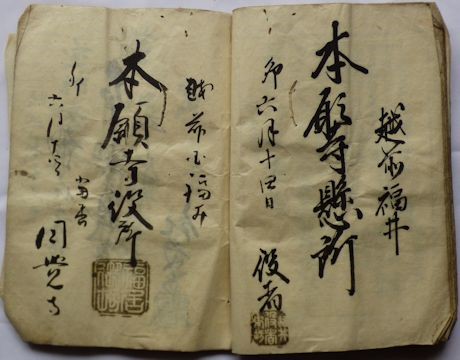 越前福井
本願寺懸所
卯六月十四日
役者
越前国福井
本願寺役所
卯
六月十四日
当番
円覚寺